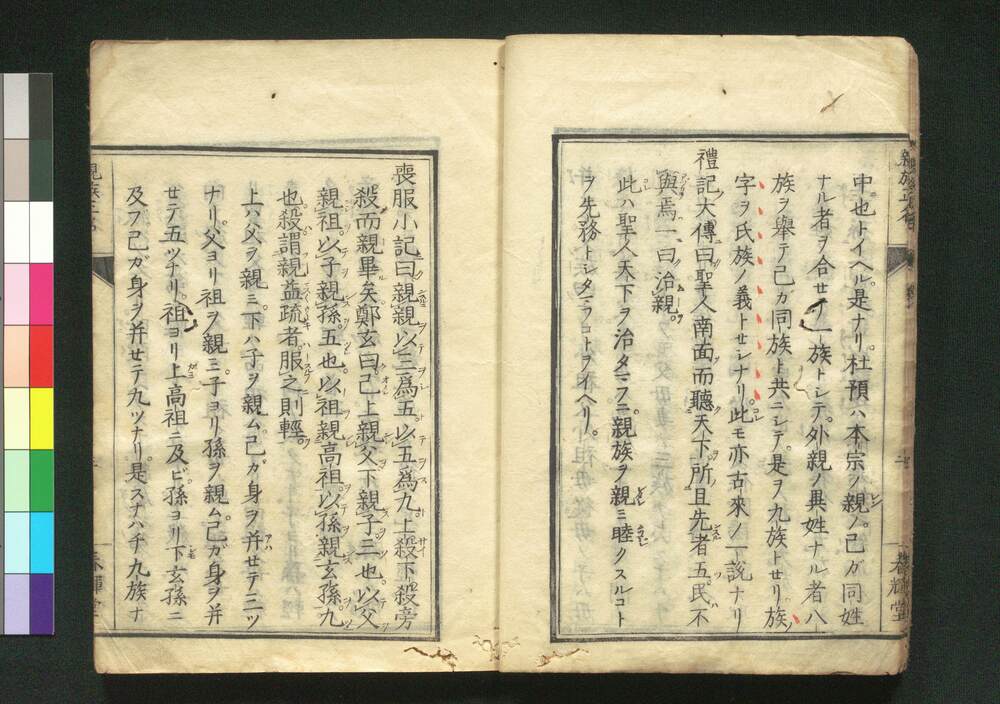 中也トイヘル是ナリ杜預ハ本宗ノ親ノ己ガ同姓
ナル者ヲ合セテ一族トシテ外親ノ異姓ナル者八
族ヲ舉テ己カ同族ト共ニシテ是ヲ九族トセリ族ノ
字ヲ氏族ノ義トセシナリ此モ亦古來ノ一說ナリ
禮記大傳曰聖人南面而聽天下所且先者五民不
與焉一曰治親
此ハ聖人天下ヲ治タマフニ親族ヲ親ミ睦クスルコト
ヲ先務トシタマフコトヲイヘリ
喪服小記曰親親以三爲五以五爲九上殺下殺旁
殺而親畢矣鄭玄曰己上親父下親子三也以父
親祖以子親孫五也以祖親高祖以孫親玄孫九
也殺謂親益疏者服之則輕
上ハ父ヲ親ミ下ハ子ヲ親ム己ガ身ヲ并セテ三ツ
ナリ父ヨリ祖ヲ親ミ子ヨリ孫ヲ親ム己ガ身ヲ并
セテ五ツナリ祖ヨリ上高祖ニ及ビ孫ヨリ下玄孫ニ
及フ己ガ身ヲ并セテ九ツナリ是スナハチ九族ナ